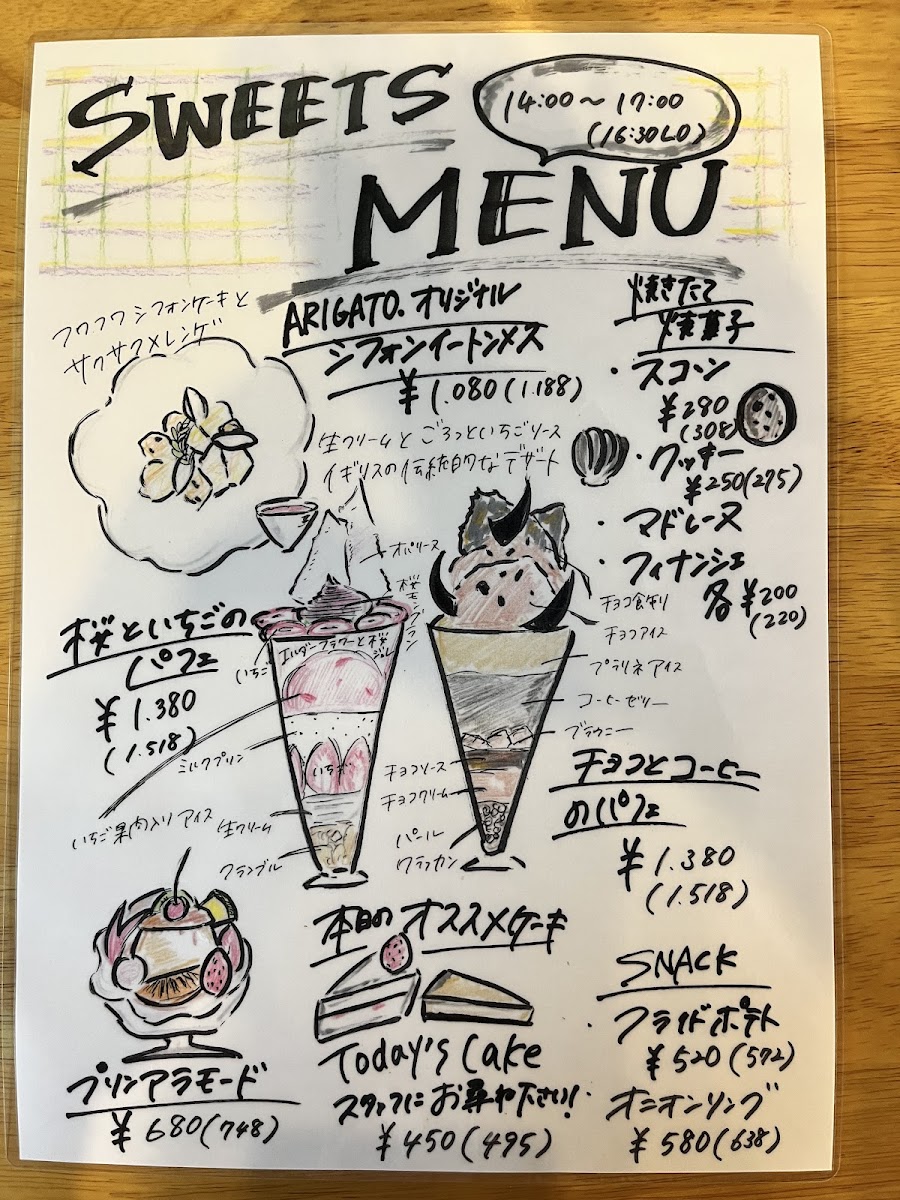 SWEETS
14:00〜17:00
(16:30LO)
MENU
フワフワシフォンケーキと
サクサクメレンゲ
ARIGATO.オリジナル
シフォンイートンメス
¥1.080(1.188)
生クリームとごろっといちごソース
イギリスの伝統的なデザート
焼きたて
焼菓子
・スコーン
¥280
(308)
・クッキー
¥250(275)
・マドレーヌ
・フィナンシェ
各¥200
(220)
桜といちごの
パフェ
¥1.380
(1.518)
オパリーヌ
桜モンブラン
いちご
エルダーフラワーと桜
ジュレ
ミルクプリン
いちご
いちご果肉入りアイス
生クリーム
クランブル
チョコ飾り
チョコアイス
プラリネアイス
コーヒーゼリー
ブラウニー
チョコソース
チョコクリーム
パール
クラッカン
チョコとコーヒー
のパフェ
¥1.380
(1.518)
プリンアラモード
¥680(748)
本日のオススメケーキ
Today's Cake
スタッフにお尋ね下さい!
¥450(495)
SNACK
・フライドポテト
¥520(572)
・オニオンリング
¥580(638)